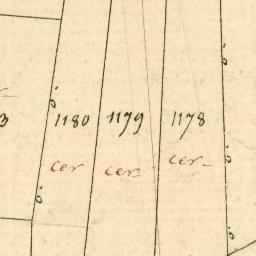 3 1180 1179 1178
cer cer- cer-